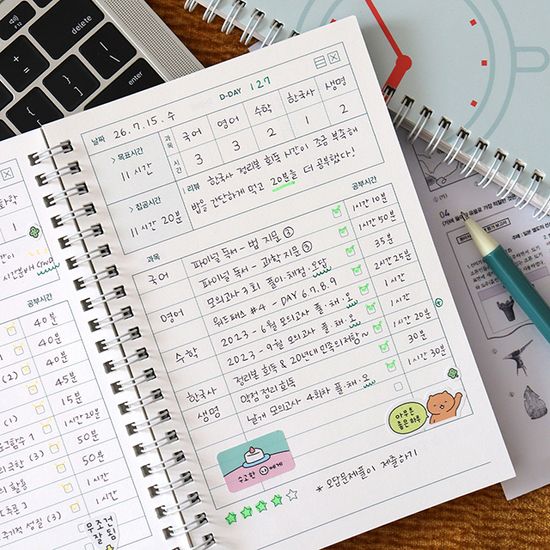 enter
return
shift
D-DAY 127
날짜 26. 7. 15. 수
목표시간
11시간
과목 국어 영어 수학 한국사 생명
시간 3 3 2 1 2
> 집공시간
11시간 20분
| 리뷰 한국사 정리본 회독 시간이 조금 부족해
밥을 간단하게 먹고 20분을 더 공부했다!
과목
공부시간
국어 파이널 독서 - 법 지문 ② 1시간 10분
파이널 독서 - 과학 지문 ③ 1시간 50분
영어 모의고사 3회 풀이·채점·오답 35분
워드패스 #4 - DAY 6.7.8.9 2시간 25분
수학 2023 - 6월 모의고사 풀·채·오 1시간
2023 - 9월 모의고사 풀·채·오 1시간
한국사 정리본 회독 & 20년대 민족의 저항~ 1시간 20분
맥점 정리 회독 30분
생명 날개 모의고사 4회차 풀·채·오 1시간 30분
수고한 에게
마무는
좋은 하루
* 오답문제풀이 제출하기
공부시간
40분
40분
45분
15분
1시간 20분
50분
50분
1시간
1시간
무조건
잘 됨
04